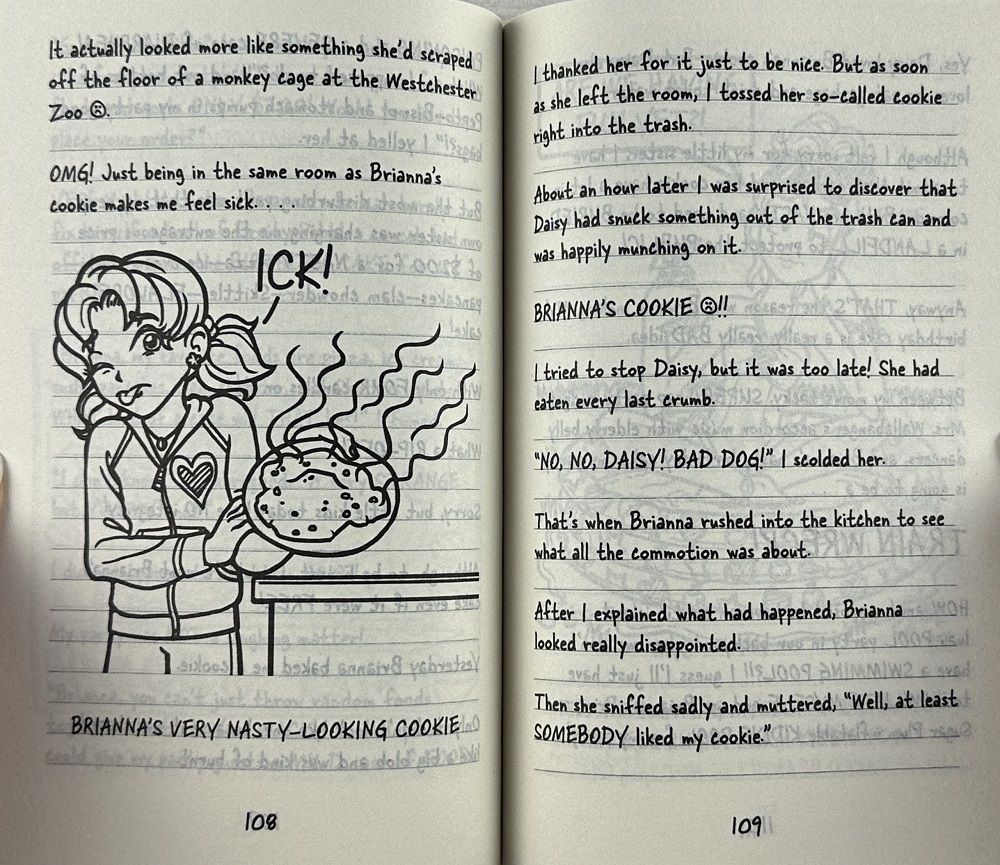 It actually looked more like something she'd scraped
off the floor of a monkey cage at the Westchester
Zoo ☹.
OMG! Just being in the same room as Brianna's
cookie makes me feel sick. . . .
ICK!
BRIANNA'S VERY NASTY-LOOKING COOKIE
108
I thanked her for it just to be nice. But as soon
as she left the room, I tossed her so-called cookie
right into the trash.
About an hour later I was surprised to discover that
Daisy had snuck something out of the trash can and
was happily munching on it.
BRIANNA'S COOKIE ☹!!
I tried to stop Daisy, but it was too late! She had
eaten every last crumb.
"NO, NO, DAISY! BAD DOG!" I scolded her.
That's when Brianna rushed into the kitchen to see
what all the commotion was about.
After I explained what had happened, Brianna
looked really disappointed.
Then she sniffed sadly and muttered, "Well, at least
SOMEBODY liked my cookie."
109